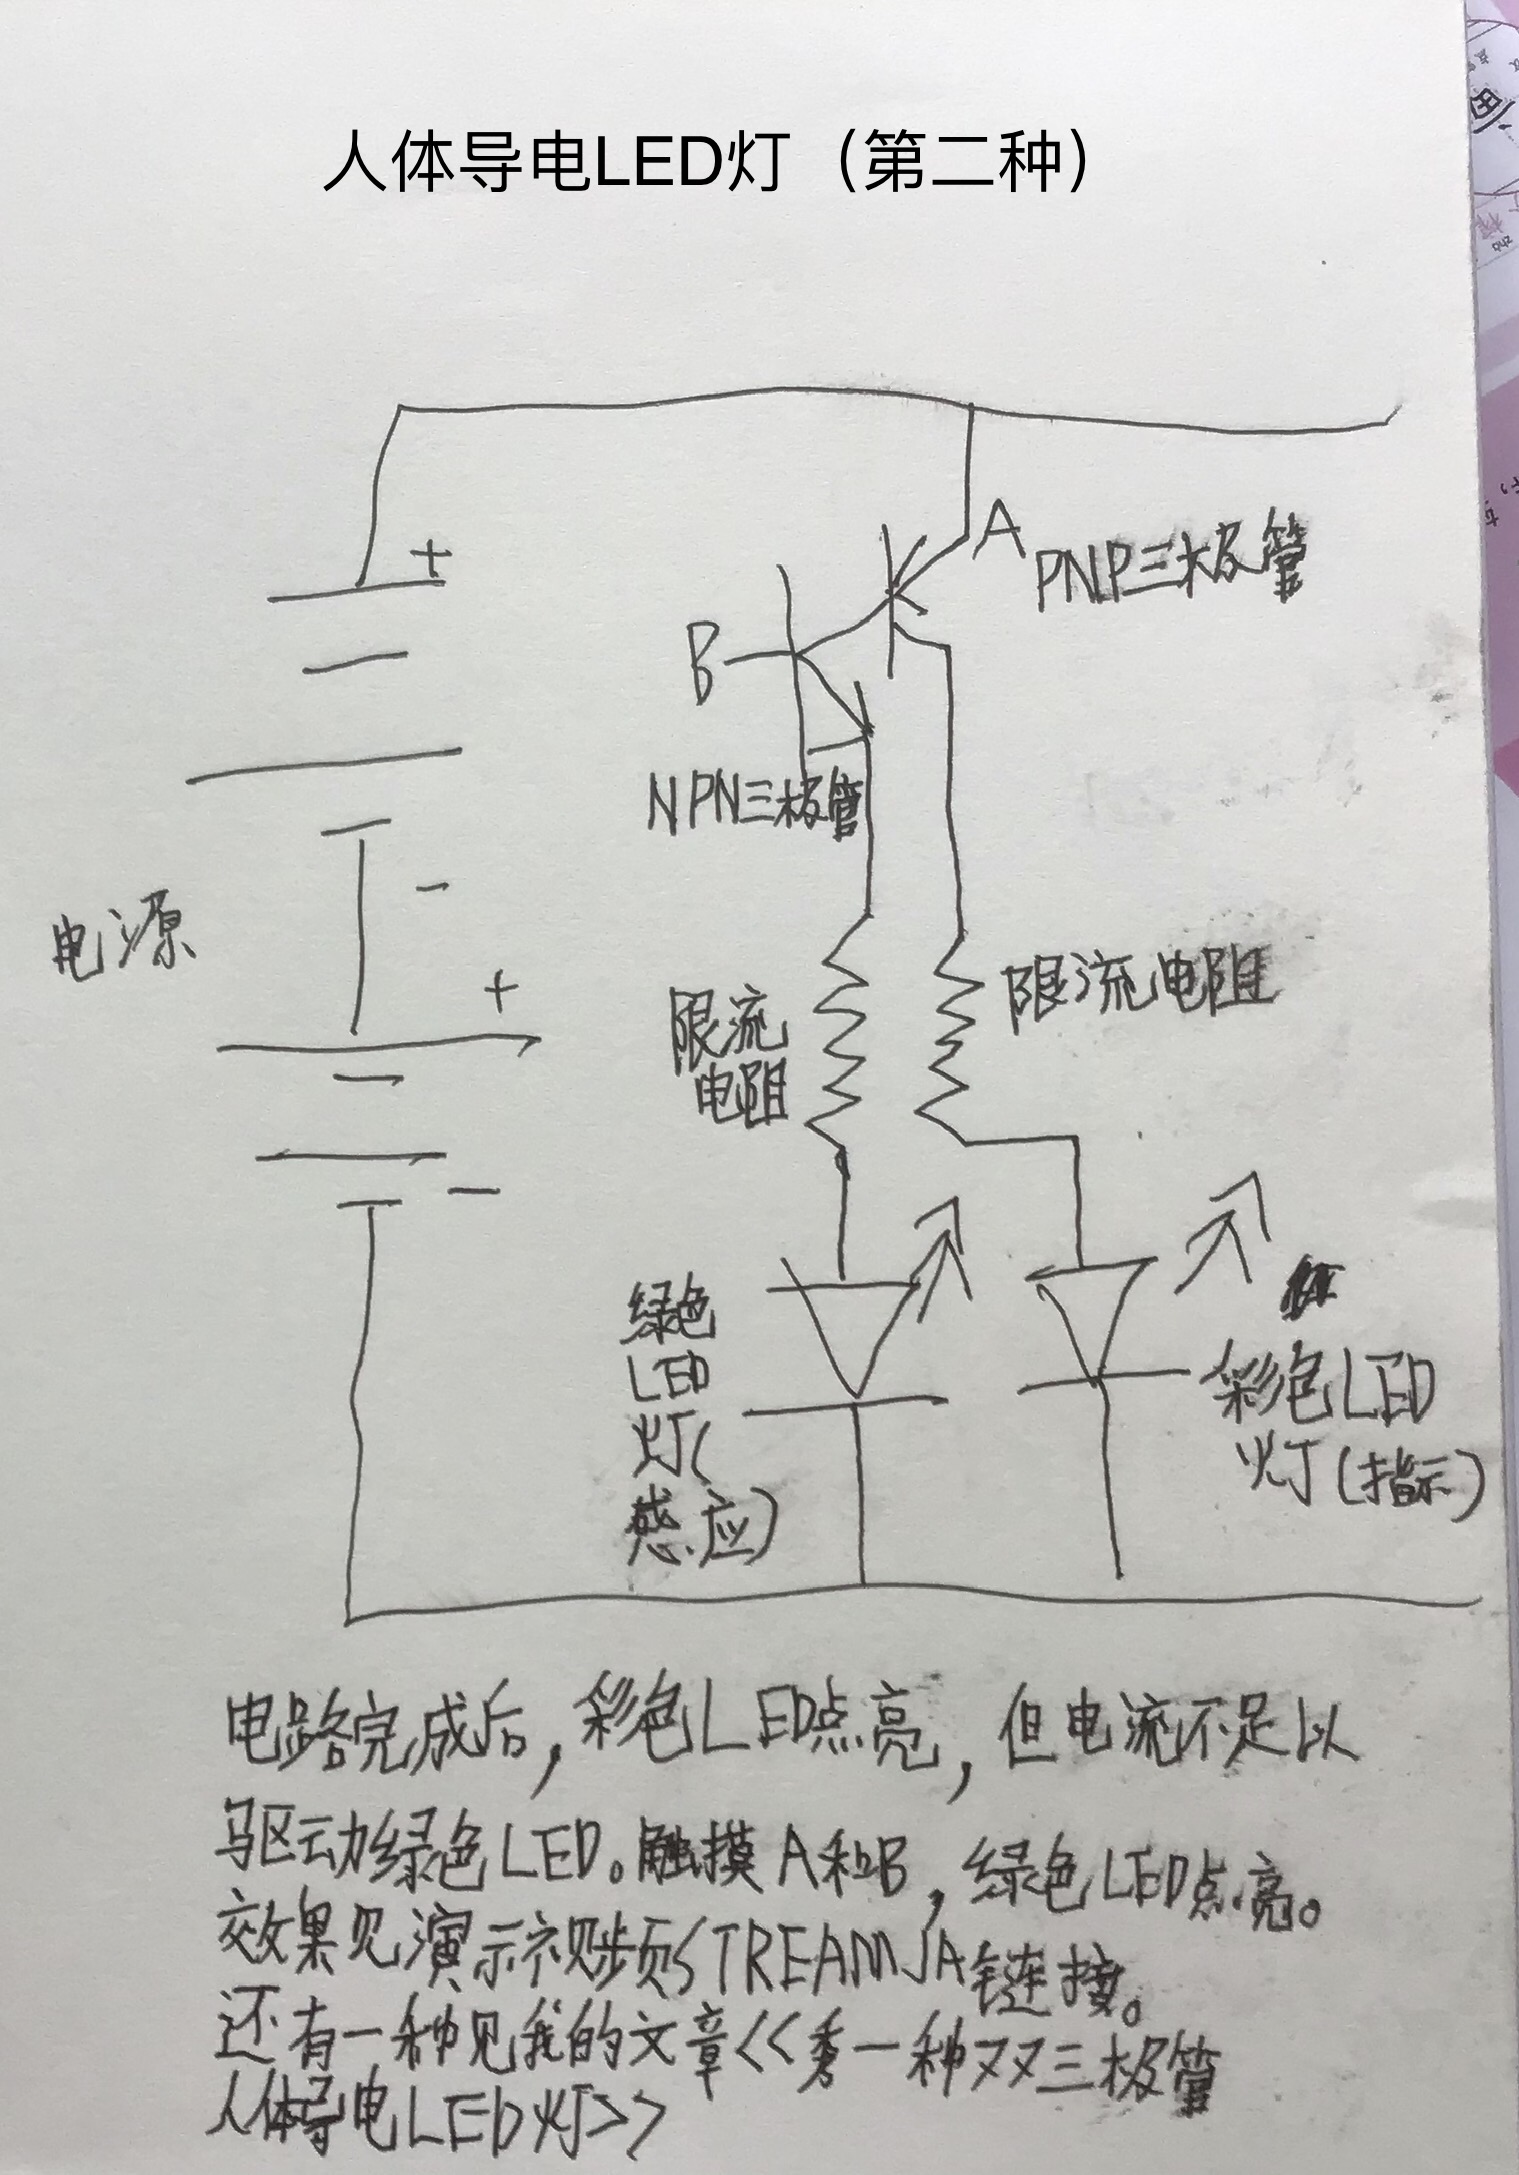 人体导电LED灯（第二种）
+
A
PNP三极管
B
NPN三极管
-
电源
+
限流电阻
限流
电阻
-
绿色
LED
灯(
感应)
彩色LED
灯(指示)
电路完成后,彩色LED点亮,但电流不足以
驱动绿色LED。触摸A和B,绿色LED点亮。
效果见演示视频STREAMJA链接。
还有一种见我的文章<<秀一种双三极管
人体导电LED灯>>